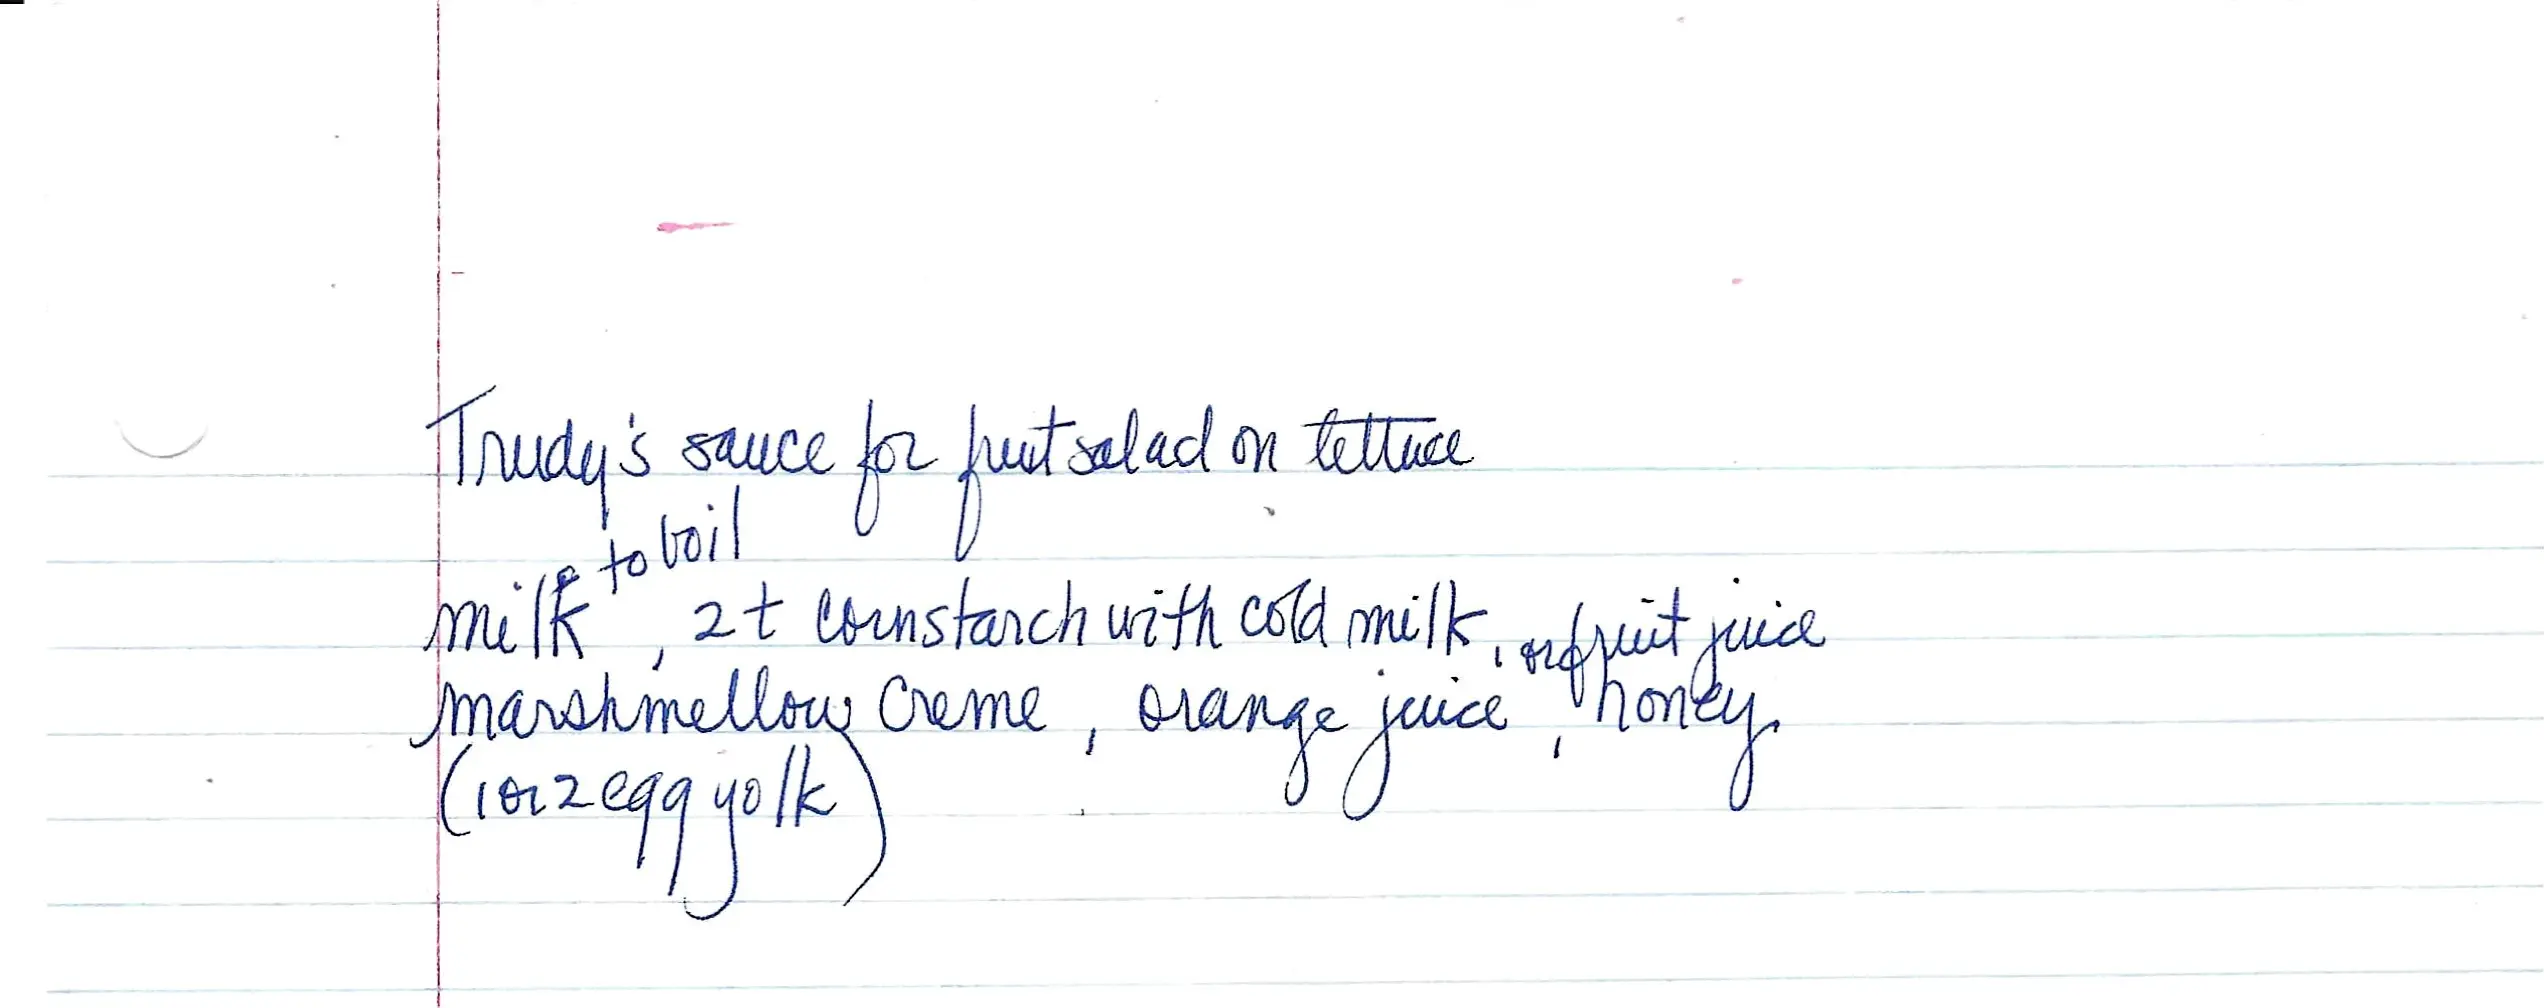 Trudy's sauce for fruit salad on lettuce
to boil
milk, 2t cornstarch with cold milk,
or fruit juice
marshmellow creme, orange juice, honey
(1 or 2 egg yolk)